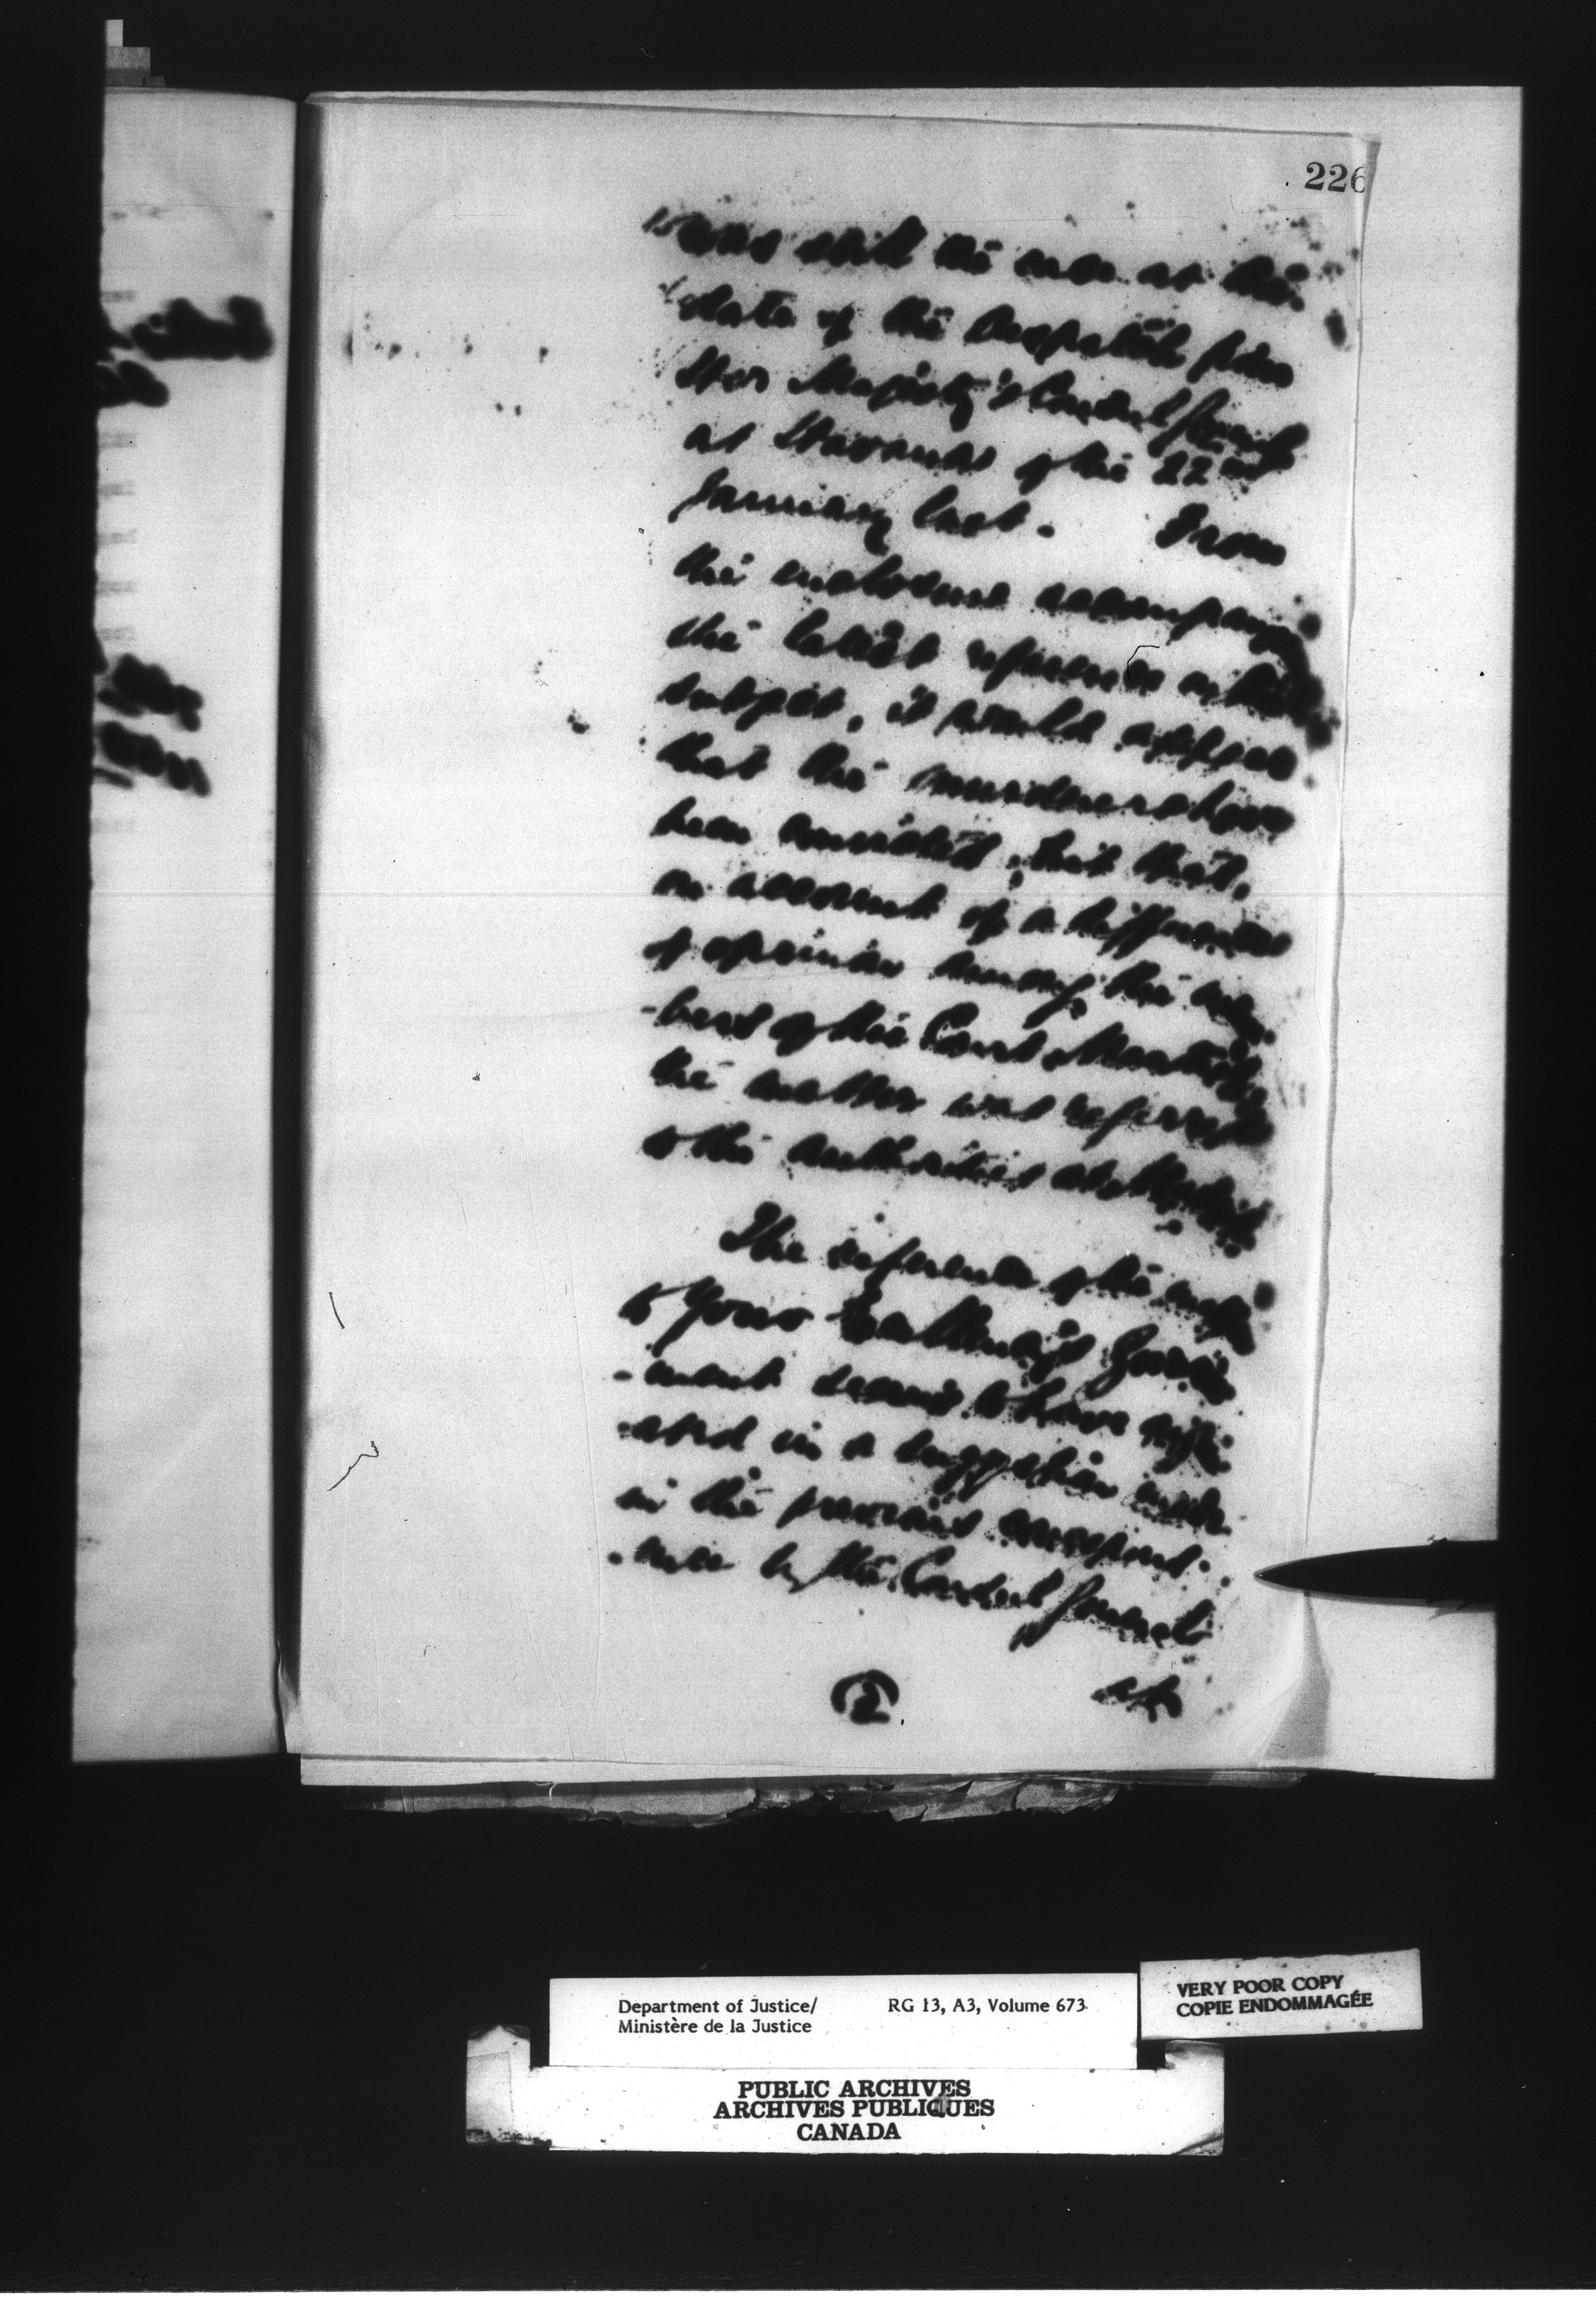 226
was still the case at the
date of the despatch from
Her Majesty's Consul General
at Havana of the 22nd
January last. From
the enclosure accompany
the latest reference on the
subject, it would appear
that the murderers have
been convicted, but that,
on account of a difference
of opinion among the mem
-bers of the Court Martial
the matter was referred
to the authorities at Madrid
The reference of the matter
to Your Excellency's Govern
-ment seems to have origin
-ated in a suggestion made
in the previous correspond-
-ence by the Consul General
at
2
Department of Justice/ RG 13, A3, Volume 673
Ministère de la Justice
VERY POOR COPY
COPIE ENDOMMAGÉE
PUBLIC ARCHIVES
ARCHIVES PUBLIQUES
CANADA